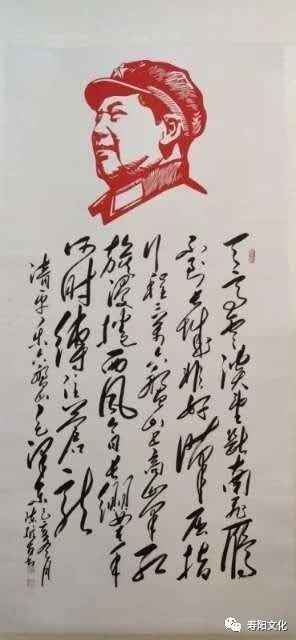 天高云淡望断南飞雁
不到长城非好汉屈指
行程二万六盘山上高峰红
旗漫捲西风今日长缨在手
何时缚住苍龙
清平乐六盘山毛泽东
寿阳文化